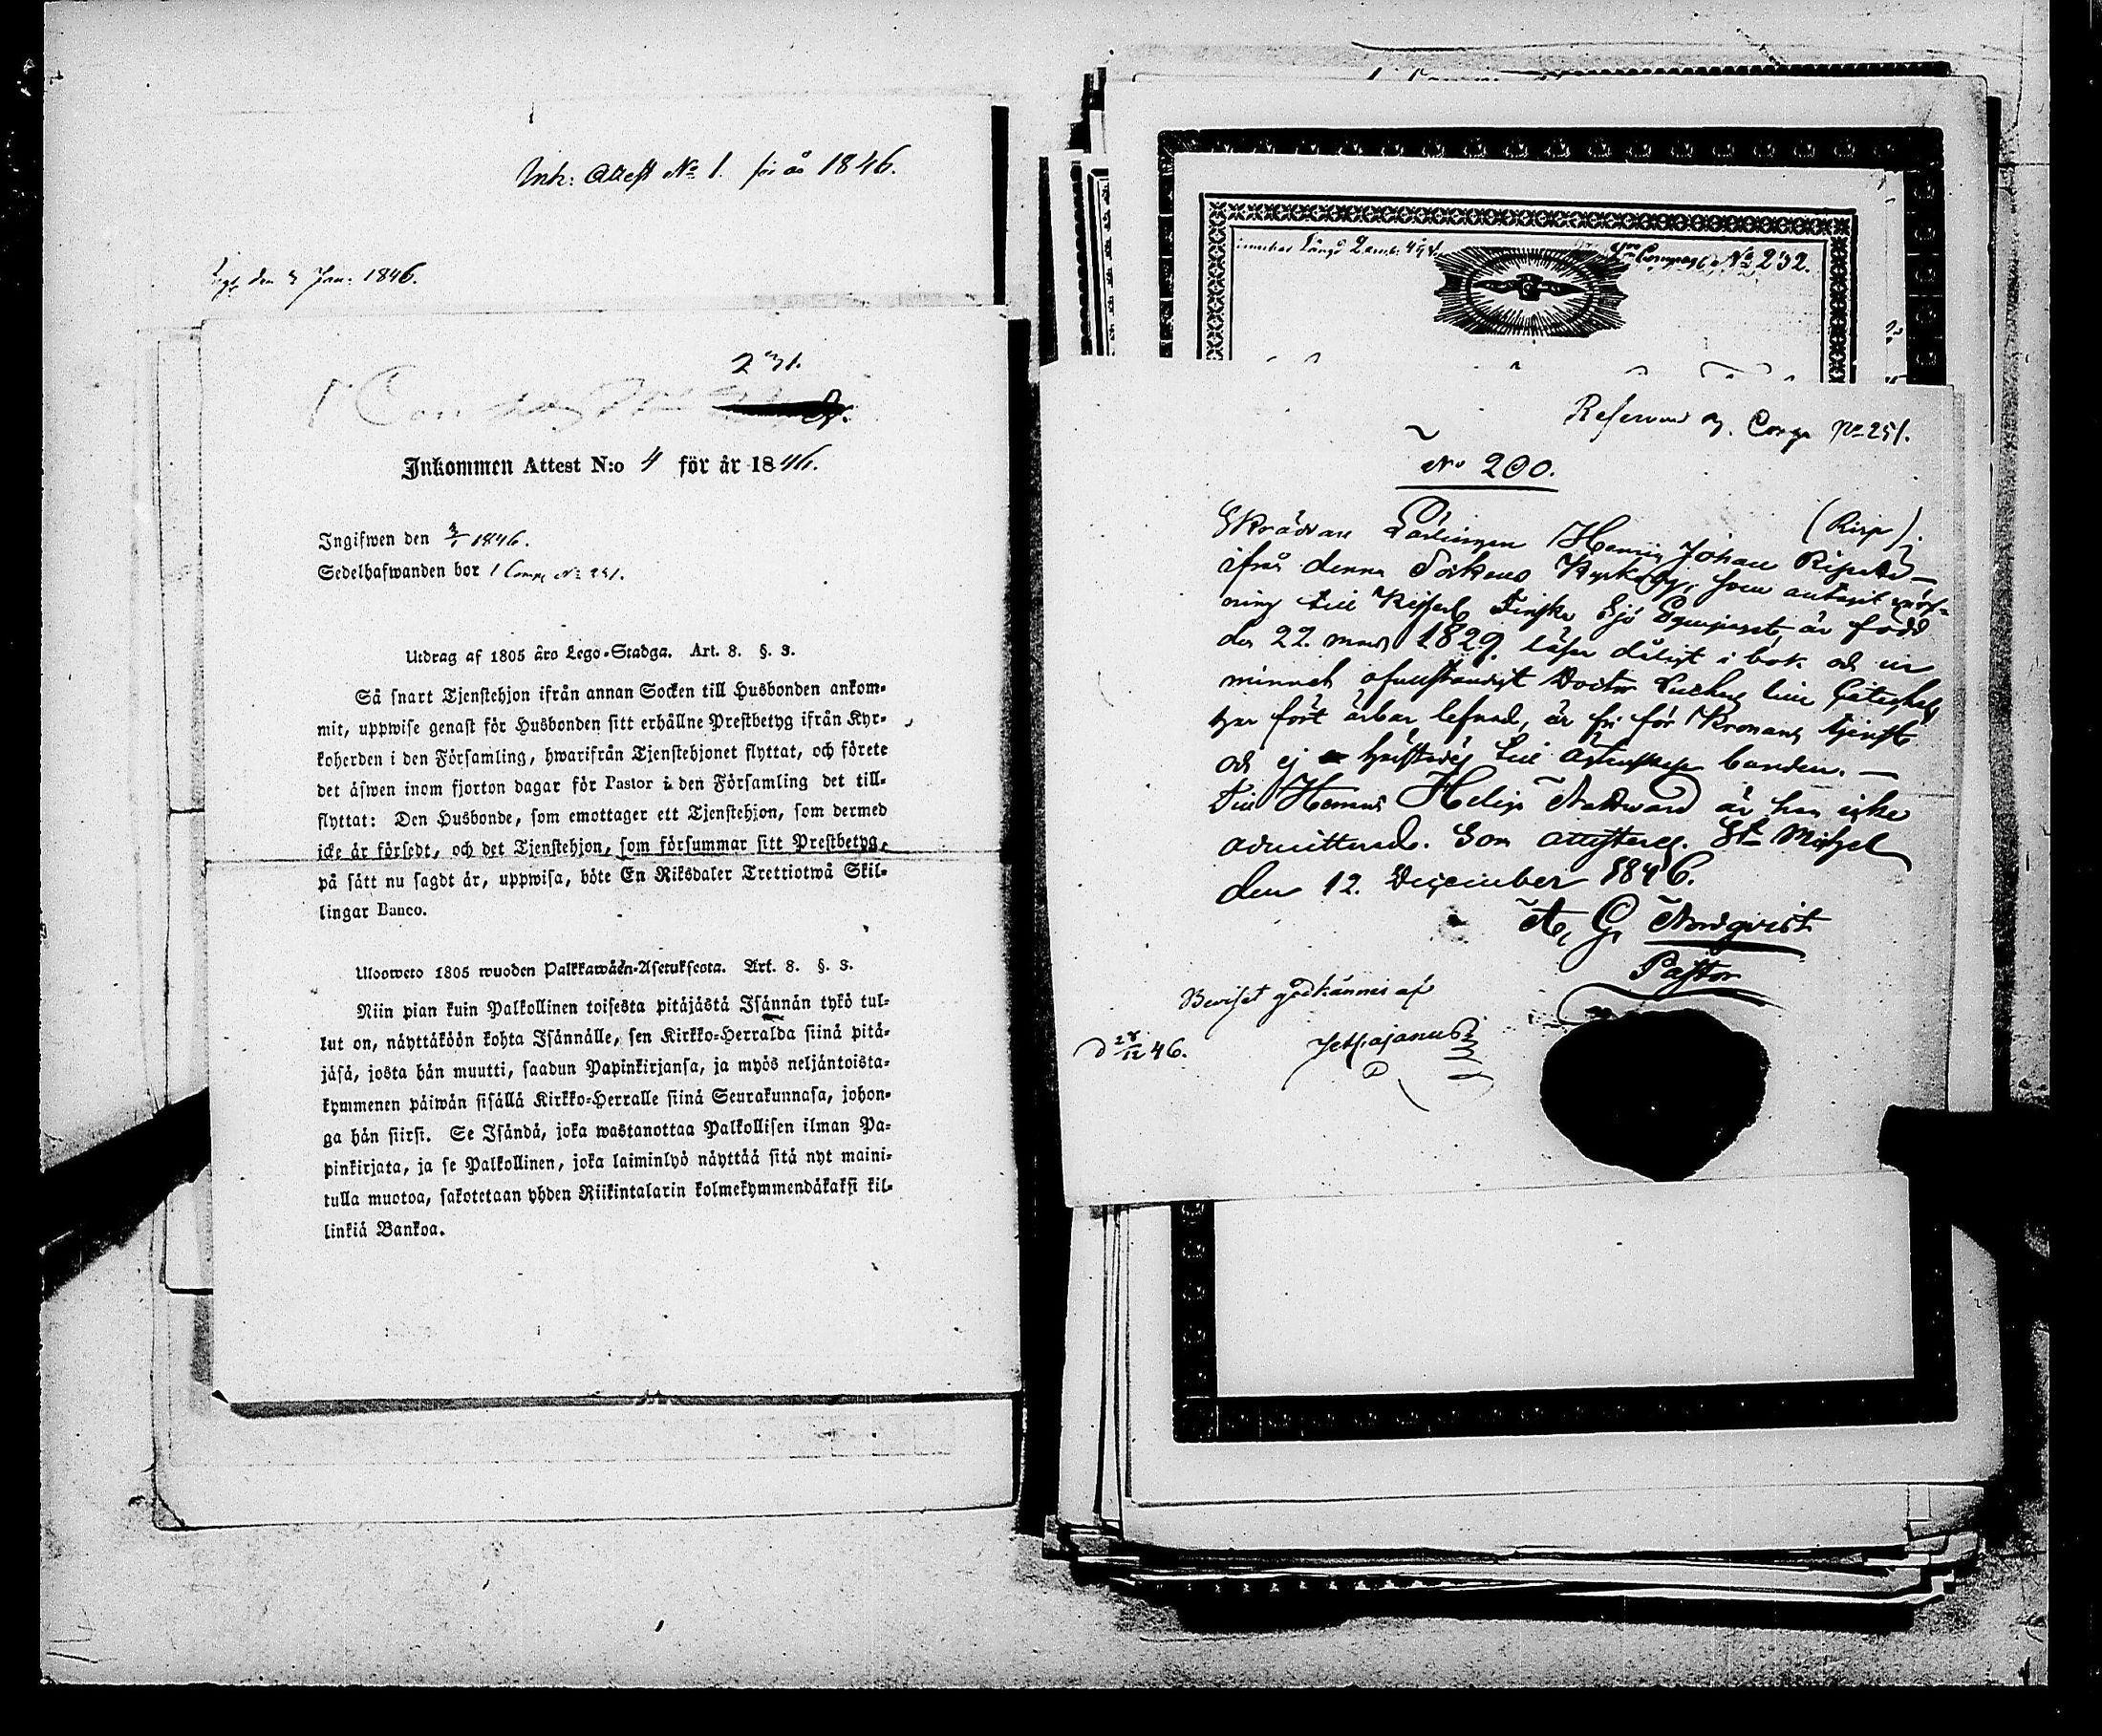 Ink: Attest No 1. för år 1846.
den 3 Jan. 1846.
231.
Inkommen Attest N:o 4 för år 1846.
Ingifwen den 3/1 1846.
Sedelhafwanden bor 1 Comp. No 231.
Utdrag af 1805 års Lego-Stadga. Art. 8. §. 3.
Så snart Tjenstehjon ifrån annan Socken till Husbonden ankom-
mit, uppwise genast för Husbonden sitt erhållne Prestbetyg ifrån Kyr-
koherden i den Församling, hwarifrån Tjenstehjonet flyttat, och förete
det äfwen inom fjorton dagar för Pastor i den Församling det till-
flyttat: Den Husbonde, som emottager ett Tjenstehjon, som dermed
icke är försedt, och det Tjenstehjon, som försummar sitt Prestbetyg,
på sätt nu sagdt är, uppwisa, böte En Riksdaler Trettiotwå Skil-
lingar Banco.
Uloosweto 1805 wuoden Palkkawäen-Asetuksesta. Art. 8. §. 3.
Niin pian kuin Palkollinen toisesta pitäjästä Isännän tykö tul-
lut on, näyttäköön kohta Isännälle, sen Kirkko-Herralda siinä pitä-
jäsä, josta hän muutti, saadun Papinkirjansa, ja myös neljäntoista-
kymmenen päiwän sisällä Kirkko-Herralle siinä Seurakunnasa, johon-
ga hän siirsi. Se Isändä, joka wastanottaa Palkollisen ilman Pa-
pinkirjata, ja se Palkollinen, joka laiminlyö näyttää sitä nyt maini-
tulla muotoa, sakotetaan yhden Riikintalarin kolmekymmendäkaksi kil-
linkiä Bankoa.
Längd No 232.
Comp No 251.
No 200.
(Risp)
Skräddare Lärlingen Henric Johan
ifrån denna Sockens Kyrkoby, som antagit värf-
ning till Finska Sjö Equipaget, är född
den 22. mars 1829. läser dåligt i bok och ur
minnet ofullständigt Doctor
har fört ärbar lefnad, är fri för Kronans tjenst
och ej häftad vid äktenskaps banden. —
Till Herrans Helige Nattvard är han icke
admitterad. Som attesterar. St Michel
den 12. December 1846.
A. G. Nordqvist
Pastor
Beviset godkännes af
d 28/12 46.